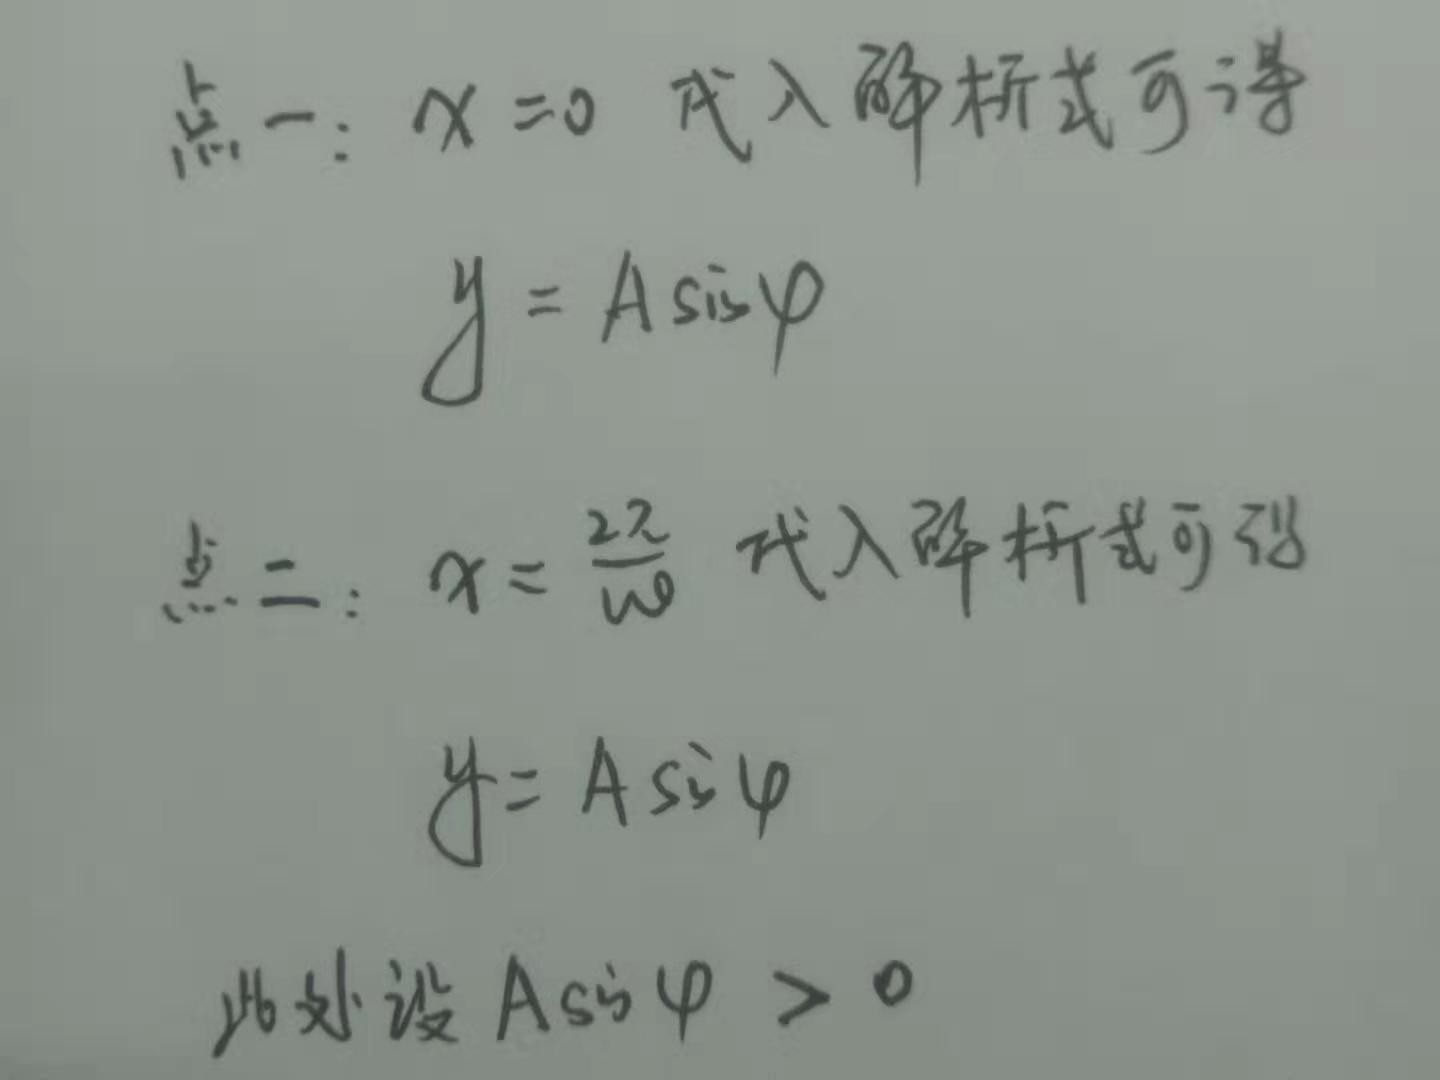 点一: x=0 代入解析式可得
y = A sinφ
点二: x = 2π/ω 代入解析式可得
y = A sinφ
此处设 A sinφ > 0